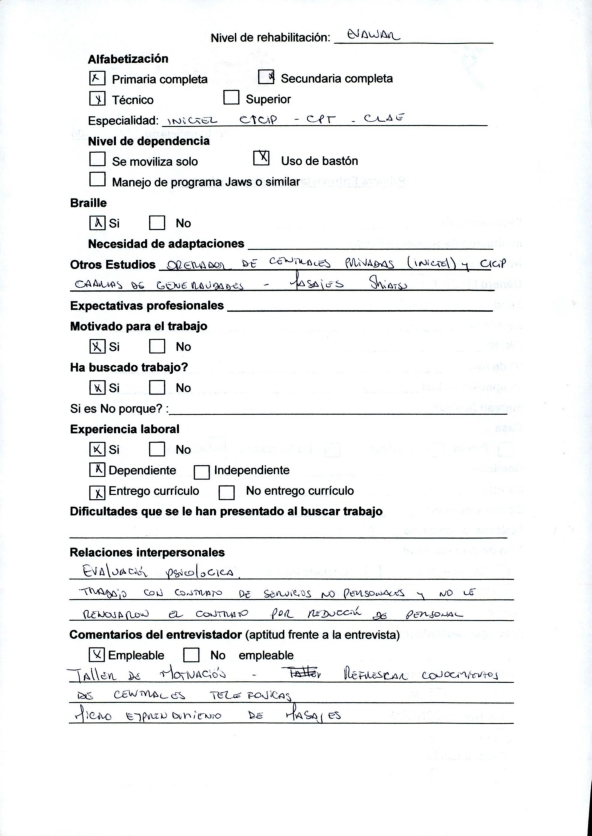 Nivel de rehabilitación: EVALUAR
Alfabetización
Primaria completa Secundaria completa
Técnico Superior
Especialidad: INICTEL CICIP - CPT - CLAE
Nivel de dependencia
Se moviliza solo Uso de bastón
Manejo de programa Jaws o similar
Braille
Si No
Necesidad de adaptaciones
Otros Estudios OPERADOR DE CENTRALES PRIVADAS (INICTEL) y CICIP
DE GENERALIDADES - MASAJES SHIATSU
Expectativas profesionales
Motivado para el trabajo
Si No
Ha buscado trabajo?
Si No
Si es No porque? :
Experiencia laboral
Si No
Dependiente Independiente
Entrego currículo No entrego currículo
Dificultades que se le han presentado al buscar trabajo
Relaciones interpersonales
EVALUACIÓN PSICOLOGICA
TRABAJO CON CONTRATO DE SERVICIOS NO PERSONALES y NO LE
RENOVARON EL CONTRATO POR REDUCCIÓN DE PERSONAL
Comentarios del entrevistador (aptitud frente a la entrevista)
Empleable No empleable
TALLER DE MOTIVACIÓN - REFRESCAR CONOCIMIENTOS
DE CENTRALES TELEFONICAS
MICRO EMPRENDIMIENTO DE MASAJES